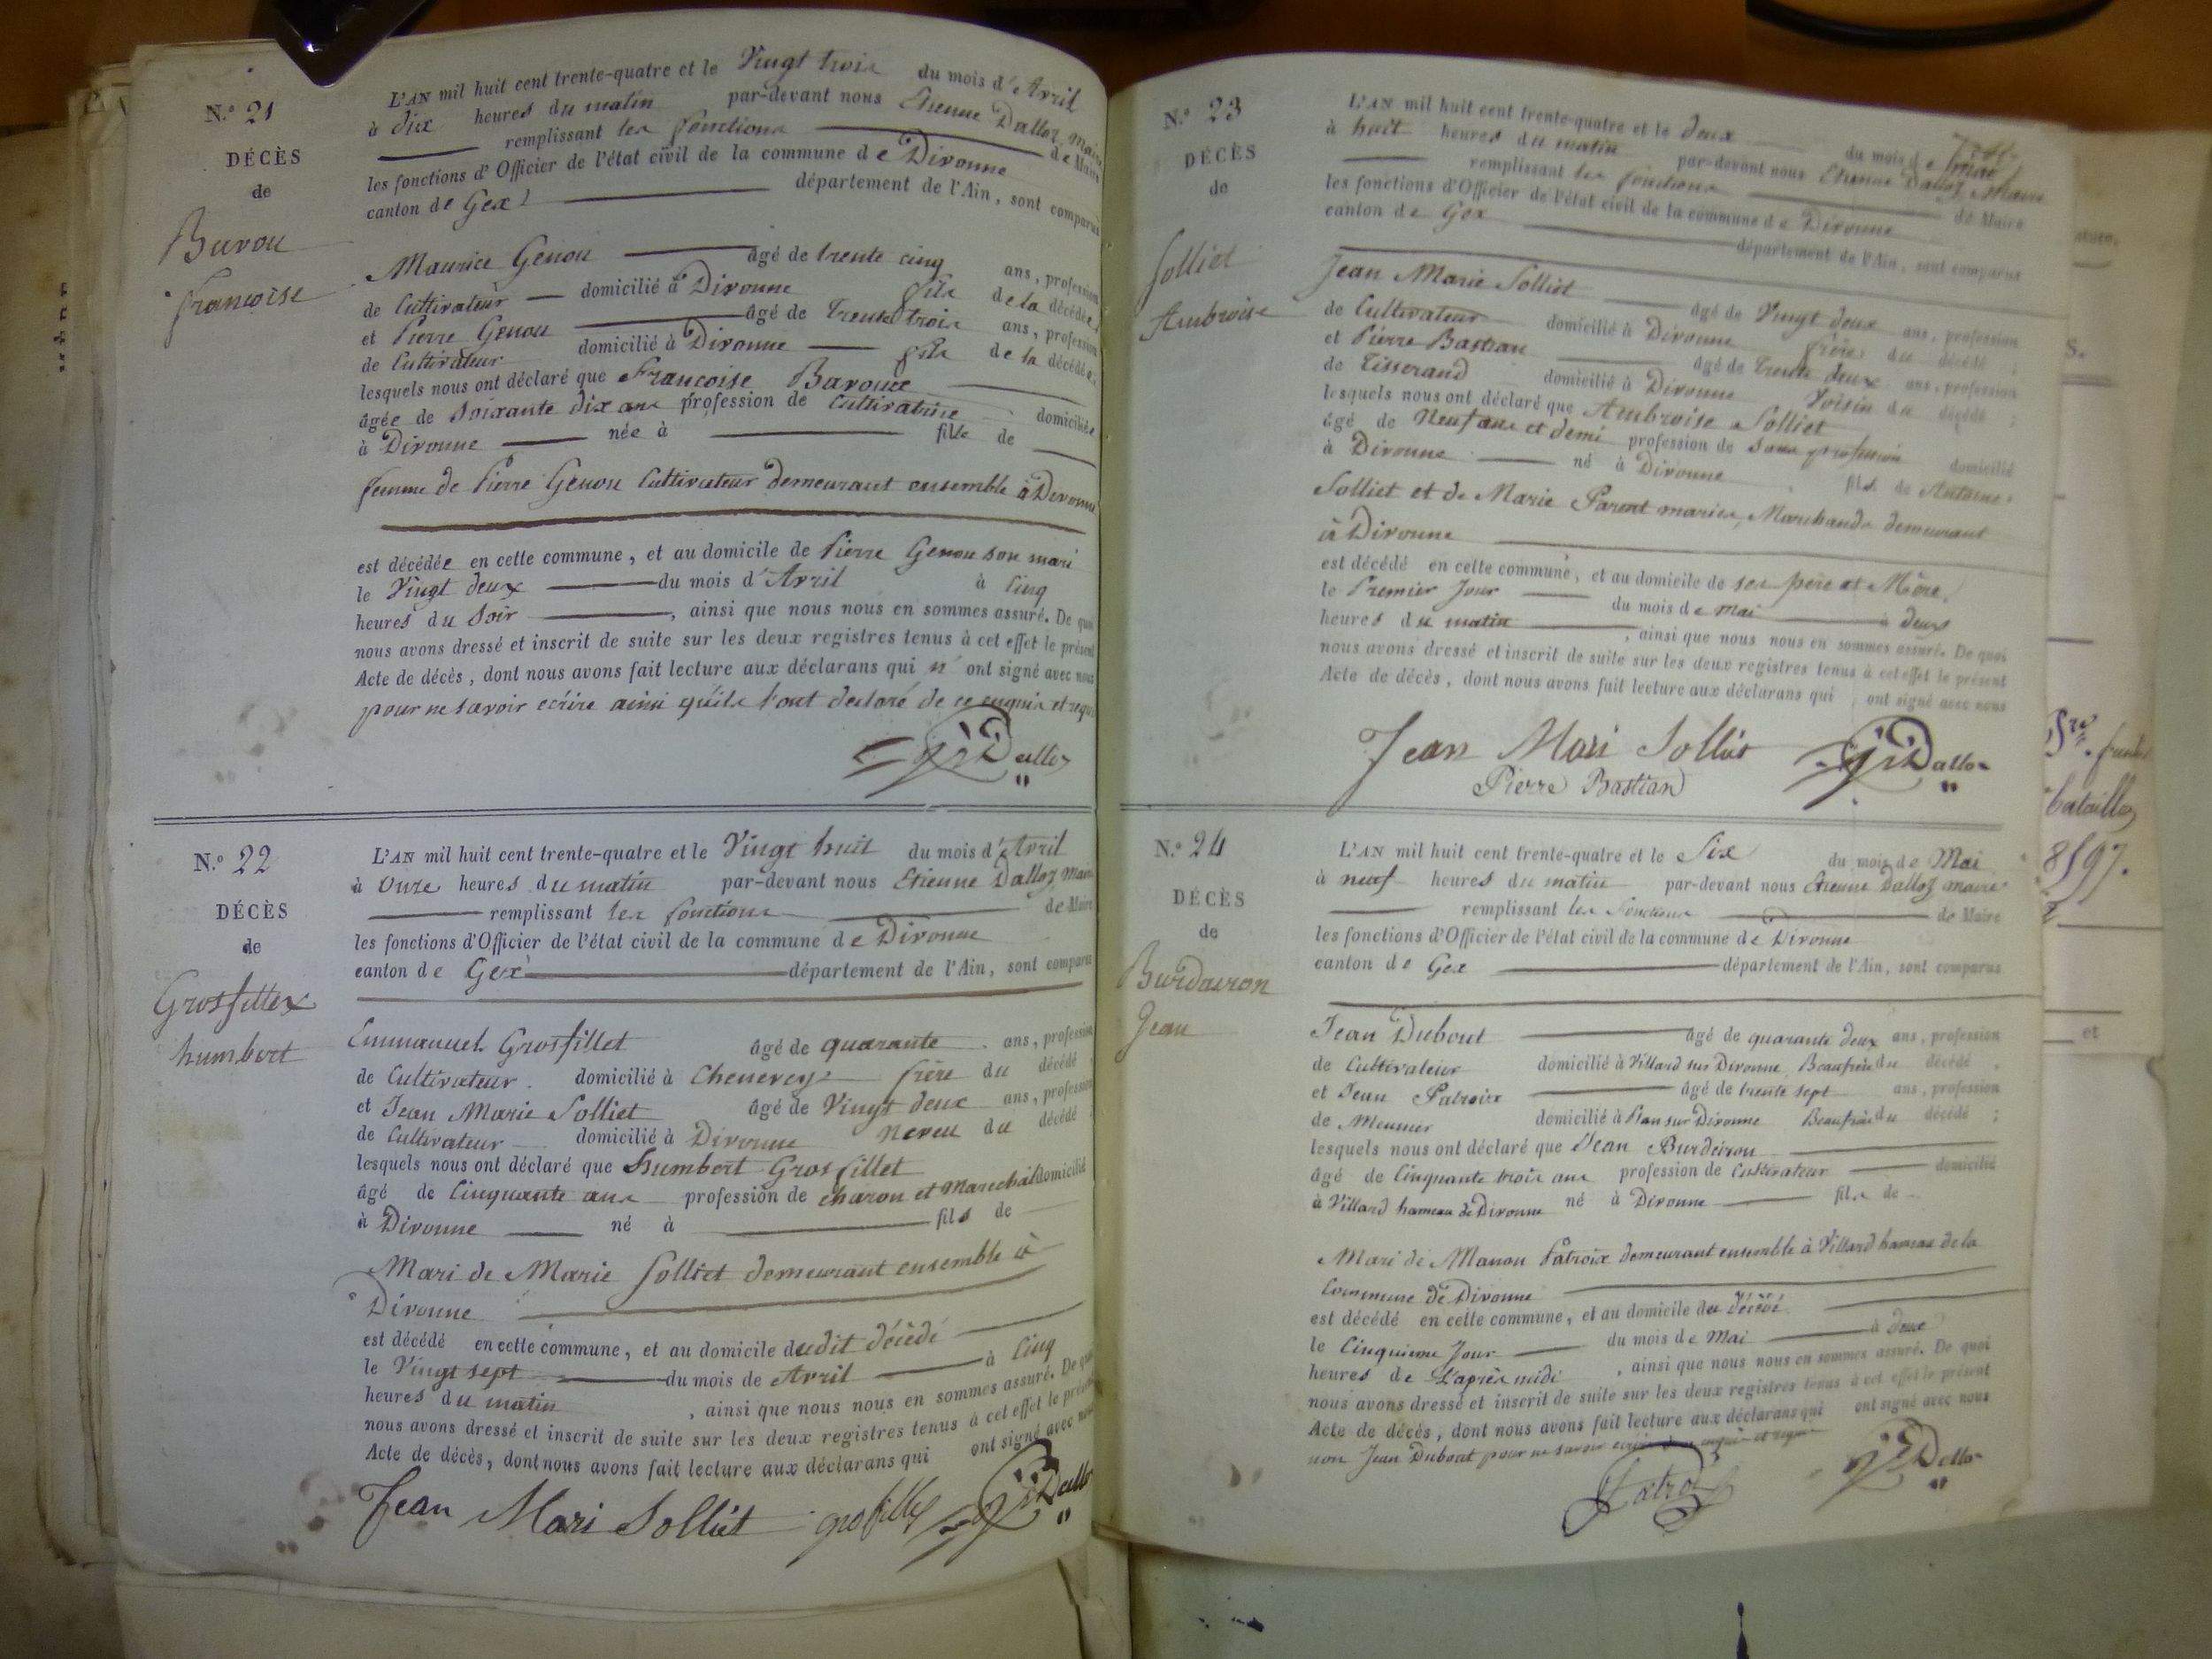 N.º 21
DÉCÈS
de
Buvou
françoise
L'AN mil huit cent trente-quatre et le Vingt trois du mois d'Avril
à dix heures du matin par-devant nous Etienne Dalloz Maire
remplissant les fonctions de Maire
les fonctions d'Officier de l'état civil de la commune de Divonne
canton de Gex département de l'Ain, sont comparus
Maurice Genou âgé de trente cinq ans, profession
de Cultivateur domicilié à Divonne fils de la décédée
et Pierre Genou âgé de trente trois ans, profession
de Cultivateur domicilié à Divonne fils de la décédée
lesquels nous ont déclaré que Françoise
âgée de soixante dix ans profession de Cultivatrice domiciliée
à Divonne née à fille de
femme de Pierre Genou Cultivateur demeurant ensemble à Divonne
est décédée en cette commune, et au domicile de Pierre Genou son mari
le Vingt deux du mois d'Avril à Cinq
heures du Soir, ainsi que nous nous en sommes assuré. De quoi
nous avons dressé et inscrit de suite sur les deux registres tenus à cet effet le présent
Acte de décès, dont nous avons fait lecture aux déclarans qui n' ont signé avec nous
pour ne savoir ecrire ainsi qu'ils l'ont declaré de ce enquis et requis
Dalloz
N.º 22
DÉCÈS
de
Grosfillex
humbert
L'AN mil huit cent trente-quatre et le Vingt huit du mois d'Avril
à Onze heures du matin par-devant nous Etienne Dalloz Maire
remplissant les fonctions de Maire
les fonctions d'Officier de l'état civil de la commune de Divonne
canton de Gex département de l'Ain, sont comparus
Emmanuel Grosfillet âgé de quarante ans, profession
de Cultivateur domicilié à frère du décédé
et Jean Marie Solliet âgé de Vingt deux ans, profession
de Cultivateur domicilié à Divonne Neveu du décédé
lesquels nous ont déclaré que humbert Grosfillet
âgé de Cinquante ans profession de charon et Marechal domicilié
à Divonne né à fils de
Mari de Marie Solliet demeurant ensemble à
Divonne
est décédé en cette commune, et au domicile dudit décédé
le Vingt sept du mois de Avril à Cinq
heures du matin, ainsi que nous nous en sommes assuré. De quoi
nous avons dressé et inscrit de suite sur les deux registres tenus à cet effet le présent
Acte de décès, dont nous avons fait lecture aux déclarans qui ont signé avec nous
Jean Mari Solliet grosfillex Dalloz
N.º 23
DÉCÈS
de
Solliet
Ambroise
L'AN mil huit cent trente-quatre et le deux du mois de Mai
à huit heures du matin par-devant nous Etienne Dalloz Maire
remplissant les fonctions de Maire
les fonctions d'Officier de l'état civil de la commune de Divonne
canton de Gex département de l'Ain, sont comparus
Jean Marie Solliet âgé de Vingt deux ans, profession
de Cultivateur domicilié à Divonne frère du décédé ;
et Pierre Bastian âgé de trente deux ans, profession
de tisserand domicilié à Divonne Voisin du décédé ;
lesquels nous ont déclaré que Ambroise Solliet
âgé de Neuf ans et demi profession de sans profession domicilié
à Divonne né à Divonne fils de Antoine
Solliet et de Marie Parent mariés, Marchands demeurant
à Divonne
est décédé en cette commune, et au domicile de ses père et Mère
le Premier Jour du mois de mai à deux
heures du matin, ainsi que nous nous en sommes assuré. De quoi
nous avons dressé et inscrit de suite sur les deux registres tenus à cet effet le présent
Acte de décès, dont nous avons fait lecture aux déclarans qui ont signé avec nous
Jean Mari Solliet Dalloz
Pierre Bastian
N.º 24
DÉCÈS
de
Burdairon
Jean
L'AN mil huit cent trente-quatre et le Six du mois de Mai
à neuf heures du matin par-devant nous Etienne Dalloz maire
remplissant les fonctions de Maire
les fonctions d'Officier de l'état civil de la commune de Divonne
canton de Gex département de l'Ain, sont comparus
Jean Dubout âgé de quarante deux ans, profession
de Cultivateur domicilié à Villard sur Divonne Beaufrère du décédé
et Jean Patroix âgé de trente sept ans, profession
de Meunier domicilié à sur Divonne Beaufrère du décédé ;
lesquels nous ont déclaré que Jean Burdeiron
âgé de Cinquante trois ans profession de Cultivateur domicilié
à Villard hameau de Divonne né à Divonne fils de
Mari de Manon Patroix demeurant ensemble à Villard hameau de la
Commune de Divonne
est décédé en cette commune, et au domicile du décédé
le Cinquieme Jour du mois de Mai à deux
heures de L'après midi, ainsi que nous nous en sommes assuré. De quoi
nous avons dressé et inscrit de suite sur les deux registres tenus à cet effet le présent
Acte de décès, dont nous avons fait lecture aux déclarans qui ont signé avec nous
non Jean Dubout pour ne savoir ecrire de ce enquis et requis
Patroix Dalloz
bataillon
8597.
et